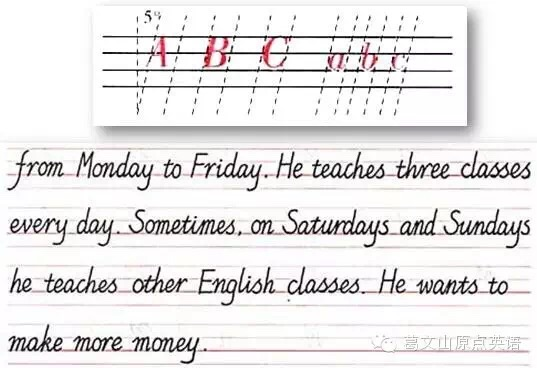 5°
A B C a b c
from Monday to Friday. He teaches three classes
every day. Sometimes, on Saturdays and Sundays
he teaches other English classes. He wants to
make more money.
葛文山原点英语